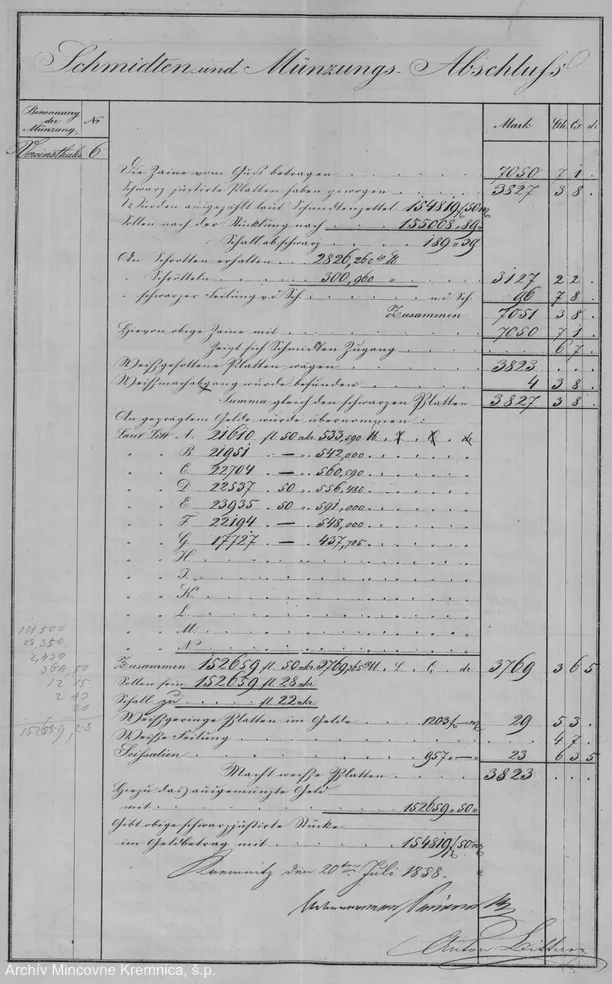 Schmidten und Münzungs-Abschluß
Benennung der Münzung. | No | Mark | Lth. | Qr. | d.
Vereinsthaler 6
Die Zaine vom Guß betragen 7050 7 1
Schwarz justirte Platten haben gewogen 3827 3 8
ausgezählt laut Schmidtenzettel 154819 f 50
Sollen nach der Stücklung nach 155008 " 89 "
Schall abschwarz 189 " 39
An Schrotten erhalten 2826,260 ℔
" Schrötteln 300,960 " 3127 2 2
" schwarzer Feilung v. d. Sch. n. d. Sch. 96 7 8
Zusammen 7051 3 8
Hievon obige Zaine mit 7050 7 1
Zeigt sich Schmidten Zugang 6 7
Weißgesottene Platten wägen 3823
Weißmachabgang wurde befunden 4 3 8
Summa gleich den schwarzen Platten 3827 3 8
An geprägtem Gelde wurde übernommen:
Laut Litt A. 21610 fl. 50 nkr. 533,590 ℔
" " B 21951 — " 542,000
" " C 22704 — " 560,590
" " D 22537 50 " 556,480
" " E 23935 50 " 591,000
" " F 22194 — " 548,000
" " G 17727 — " 437,705
" " H.
" " I.
" " K.
" " L.
" " M.
" " N.
Zusammen 152659 fl. 50 nkr. 3769,365 ℔ L. Q. d. 3769 3 6 5
Sollen sein 152659 fl. 28 nkr.
Schall zu fl. 22 nkr.
Weißgeringe Platten im Gelde 1203 f — 29 5 3
Weiße Feilung 4 7
Scissalien 957 " — " 23 6 3 5
Macht weiße Platten 3823
Hiezu das ausgemünzte Geld
mit 152659 " 50 "
Gibt obige schwarzjustirte Stücke
im Geldbetrag mit 154819 f 50
Kremnitz den 20ten Juli 1858.
Anton
364,50
12 15
2 43
20
152659,28
Archív Mincovne Kremnica, š.p.